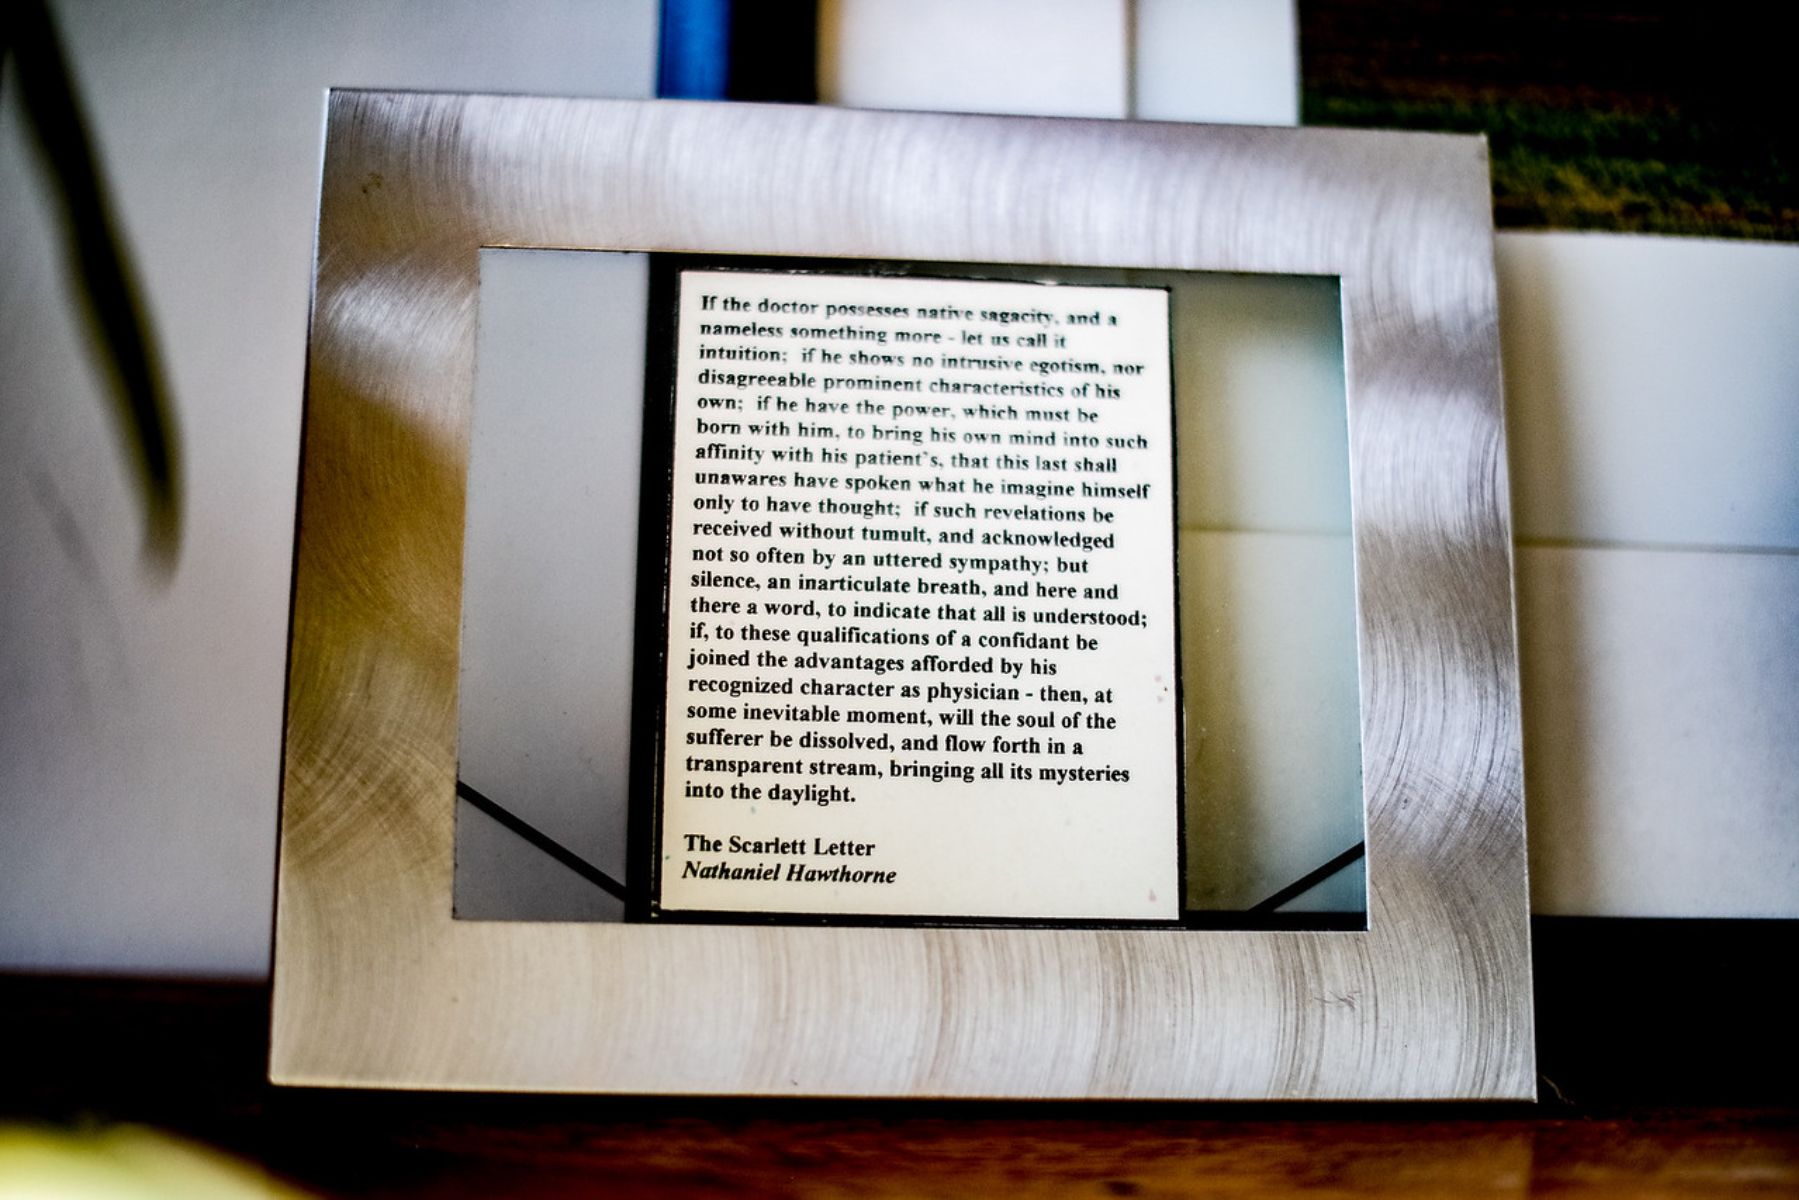 If the doctor possesses native sagacity, and a
nameless something more - let us call it
intuition;  if he shows no intrusive egotism, nor
disagreeable prominent characteristics of his
own;  if he have the power, which must be
born with him, to bring his own mind into such
affinity with his patient's, that this last shall
unawares have spoken what he imagine himself
only to have thought;  if such revelations be
received without tumult, and acknowledged
not so often by an uttered sympathy; but
silence, an inarticulate breath, and here and
there a word, to indicate that all is understood;
if, to these qualifications of a confidant be
joined the advantages afforded by his
recognized character as physician - then, at
some inevitable moment, will the soul of the
sufferer be dissolved, and flow forth in a
transparent stream, bringing all its mysteries
into the daylight.
The Scarlett Letter
Nathaniel Hawthorne